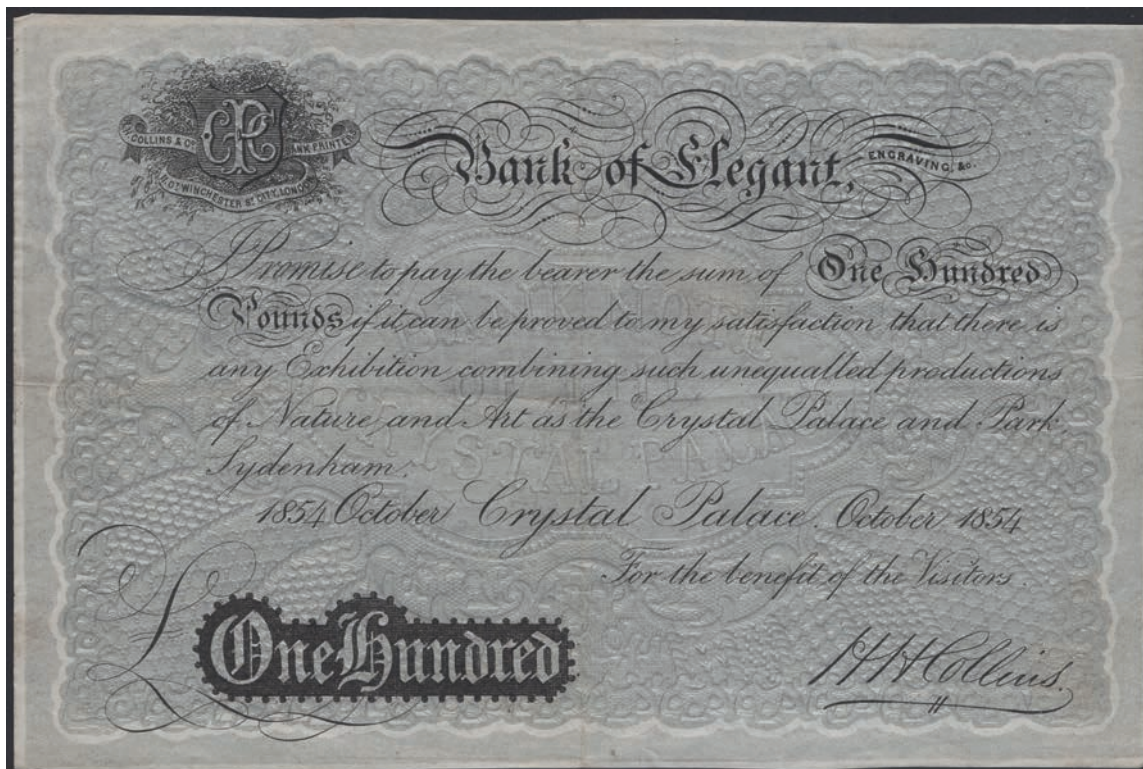 CPC
H.H. COLLINS & Co. BANK PRINTERS
R. Gt. WINCHESTER St. CITY, LONDON
Bank of Elegant, ENGRAVING, &c.
I Promise to pay the bearer the sum of One Hundred
Pounds if it can be proved to my satisfaction that there is
any Exhibition combining such unequalled productions
of Nature and Art as the Crystal Palace and Park,
Sydenham.
BANK NOTE
OF THE
CRYSTAL PALACE
1854 October Crystal Palace. October 1854
For the benefit of the Visitors.
£ One Hundred
H H Collins